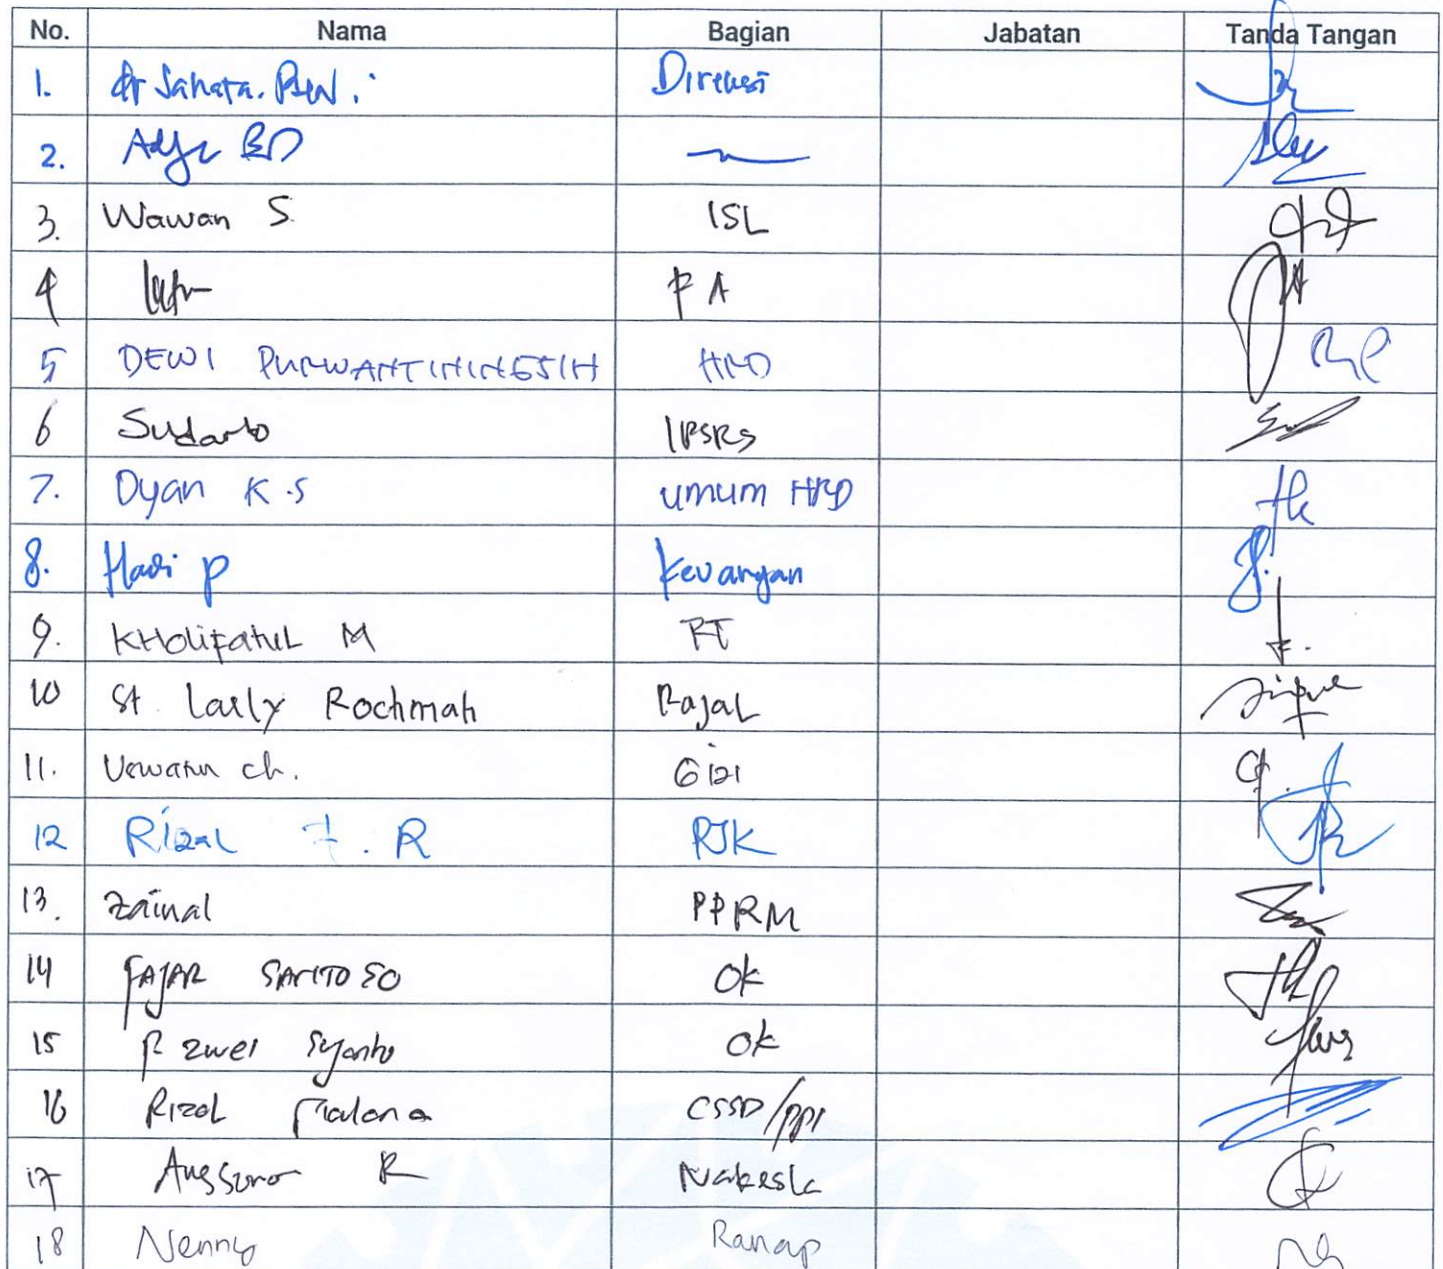 No. Nama Bagian Jabatan Tanda Tangan
1. dr Sahata. Direksi
2.
3. Wawan S. ISL
4
5 DEWI PURWANTININGSIH HRD
6 Sudarto IPSRS
7. Dyan K.S umum HRD
8. Hadi P Keuangan
9. KHOLIFATUL M RT
10 St. Laily Rochmah Rajal
11. ch. Gizi
12 Rizal F. R PJK
13. Zainal PPRM
14 FAJAR SANTOSO OK
15 OK
16 Rizal Maulana CSSD/PPI
17 R
18 Nenny Ranap